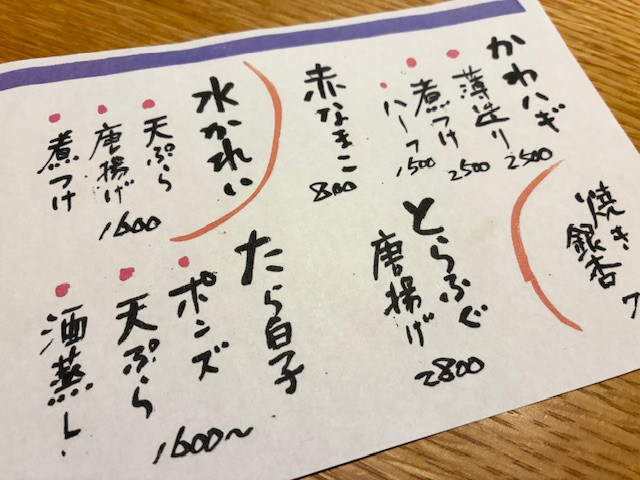 かわハギ
薄造り
2500
煮つけ
2500
ハーフ
1500
赤なまこ
800
水かれい
天ぷら
唐揚げ
1600
煮つけ
焼き
銀杏
7
とらふぐ
唐揚げ
2800
たら白子
ポンズ
天ぷら
1600〜
酒蒸し